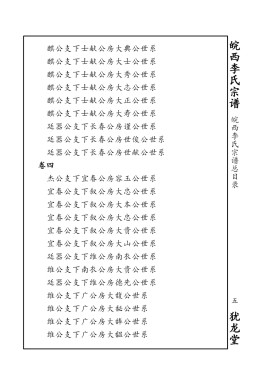 皖西李氏宗谱
皖西李氏宗谱总目录
五
犹龙堂
麒公支下士献公房大典公世系
麒公支下士献公房大士公世系
麒公支下士献公房大秀公世系
麒公支下士献公房大志公世系
麒公支下士献公房大正公世系
麒公支下士献公房大寿公世系
廷器公支下长春公房谨公世系
廷器公支下长春公房世俊公世系
廷器公支下长春公房世献公世系
卷四
杰公支下宜春公房容玉公世系
宜春公支下叙公房大志公世系
宜春公支下叙公房大本公世系
宜春公支下叙公房大忠公世系
宜春公支下叙公房大贵公世系
宜春公支下叙公房大山公世系
廷器公支下维公房南衣公世系
维公支下南衣公房大贵公世系
廷器公支下维公房德先公世系
维公支下广公房大馥公世系
维公支下广公房大秘公世系
维公支下广公房大
维公支下广公房大韫公世系